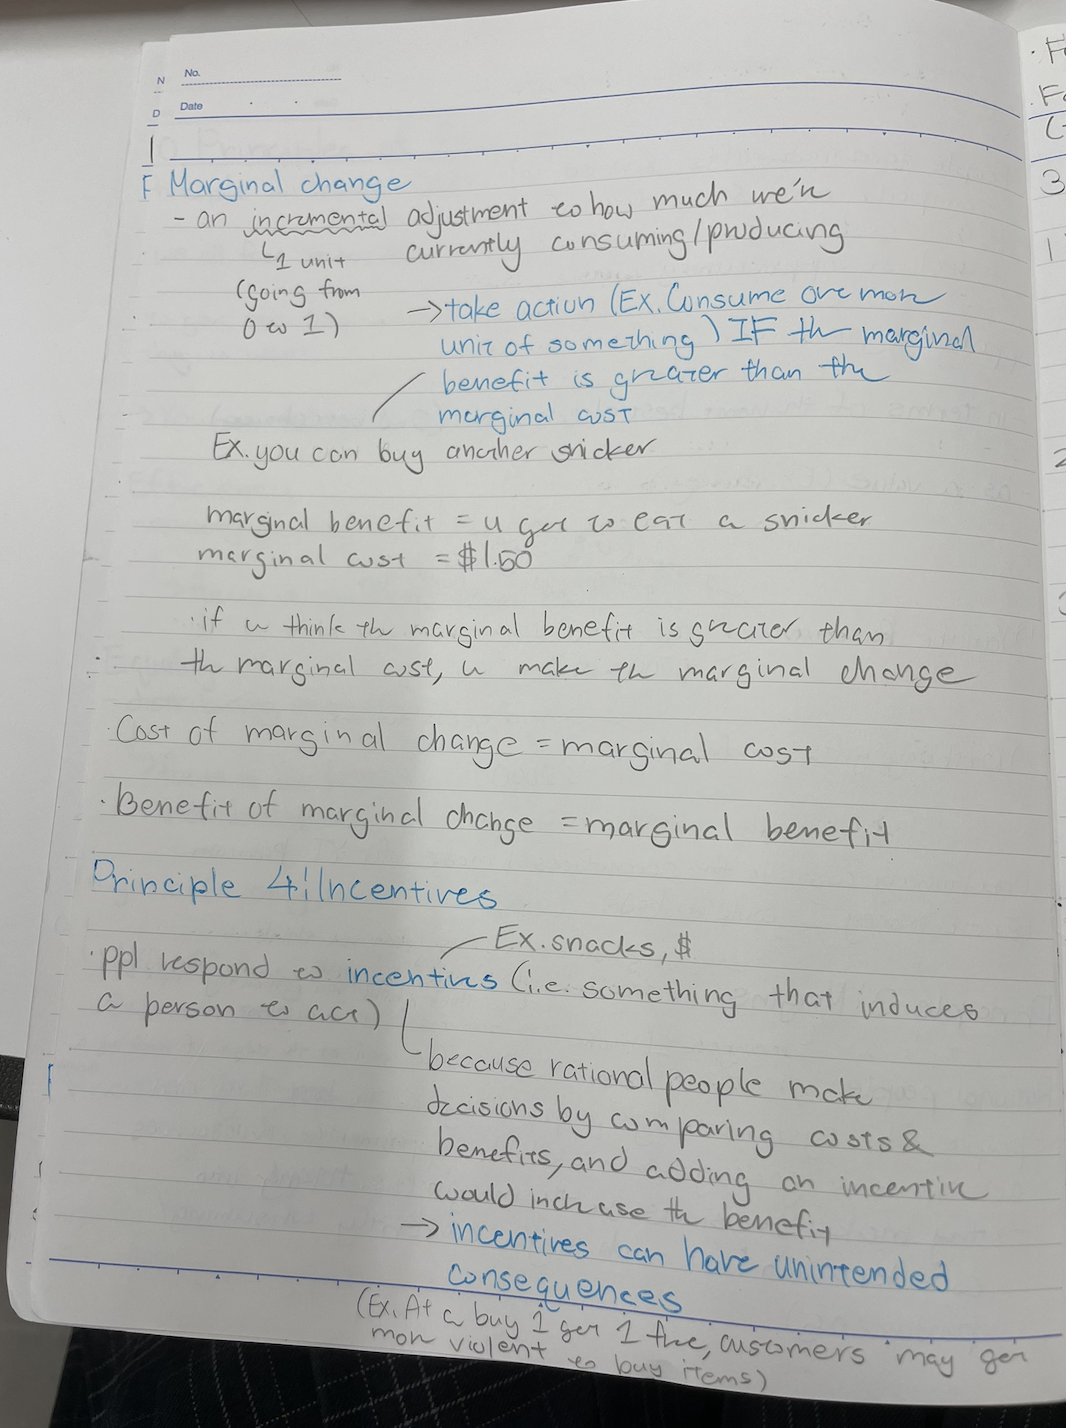 No.
N
Date
D
Marginal change
- an incremental adjustment to how much we're
↳1 unit currently consuming/producing
(going from
0 to 1)
→take action (Ex. Consume one more
unit of something) IF the marginal
benefit is greater than the
marginal cost
Ex. you can buy another snicker
marginal benefit = u get to eat a snicker
marginal cost = $1.50
·if u think the marginal benefit is greater than
the marginal cost, u make the marginal change
·Cost of marginal change = marginal cost
·Benefit of marginal change = marginal benefit
Principle 4: Incentives
Ex. snacks, $
·ppl respond to incentives (i.e. something that induces
a person to act)
because rational people make
decisions by comparing costs &
benefits, and adding an incentive
would increase the benefit
→ incentives can have unintended
consequences
(Ex. At a buy 1 get 1 free, customers may get
more violent to buy items)